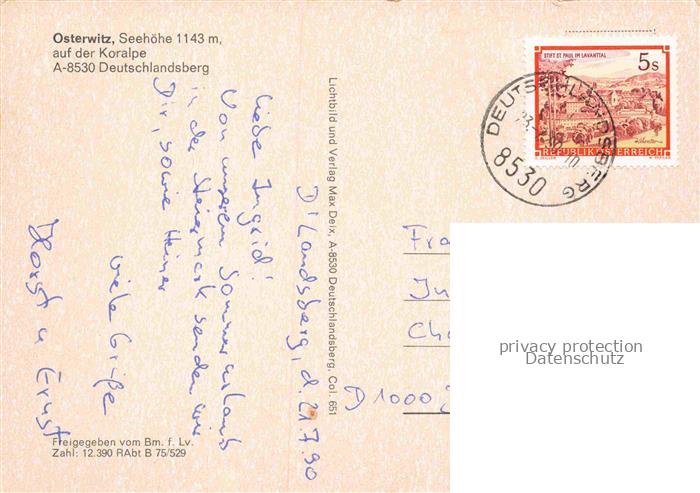 Osterwitz, Seehöhe 1143 m,
auf der Koralpe
A-8530 Deutschlandsberg
STIFT ST. PAUL IM LAVANTTAL
5s
REPUBLIK ÖSTERREICH
DEUTSCHLANDSBERG
8530
Lichtbild und Verlag Max Deix, A-8530 Deutschlandsberg, Col. 651
D'Landsberg, d. 21.7.90
Liebe Ingrid!
Von unserem Sommerurlaub
in der Steiermark senden wir
Dir, sowie Heiner
viele Grüße
Horst u Ernst
Fra
In
Ch
D 1000 2
privacy protection
Datenschutz
Freigegeben vom Bm. f. Lv.
Zahl: 12.390 RAbt B 75/529